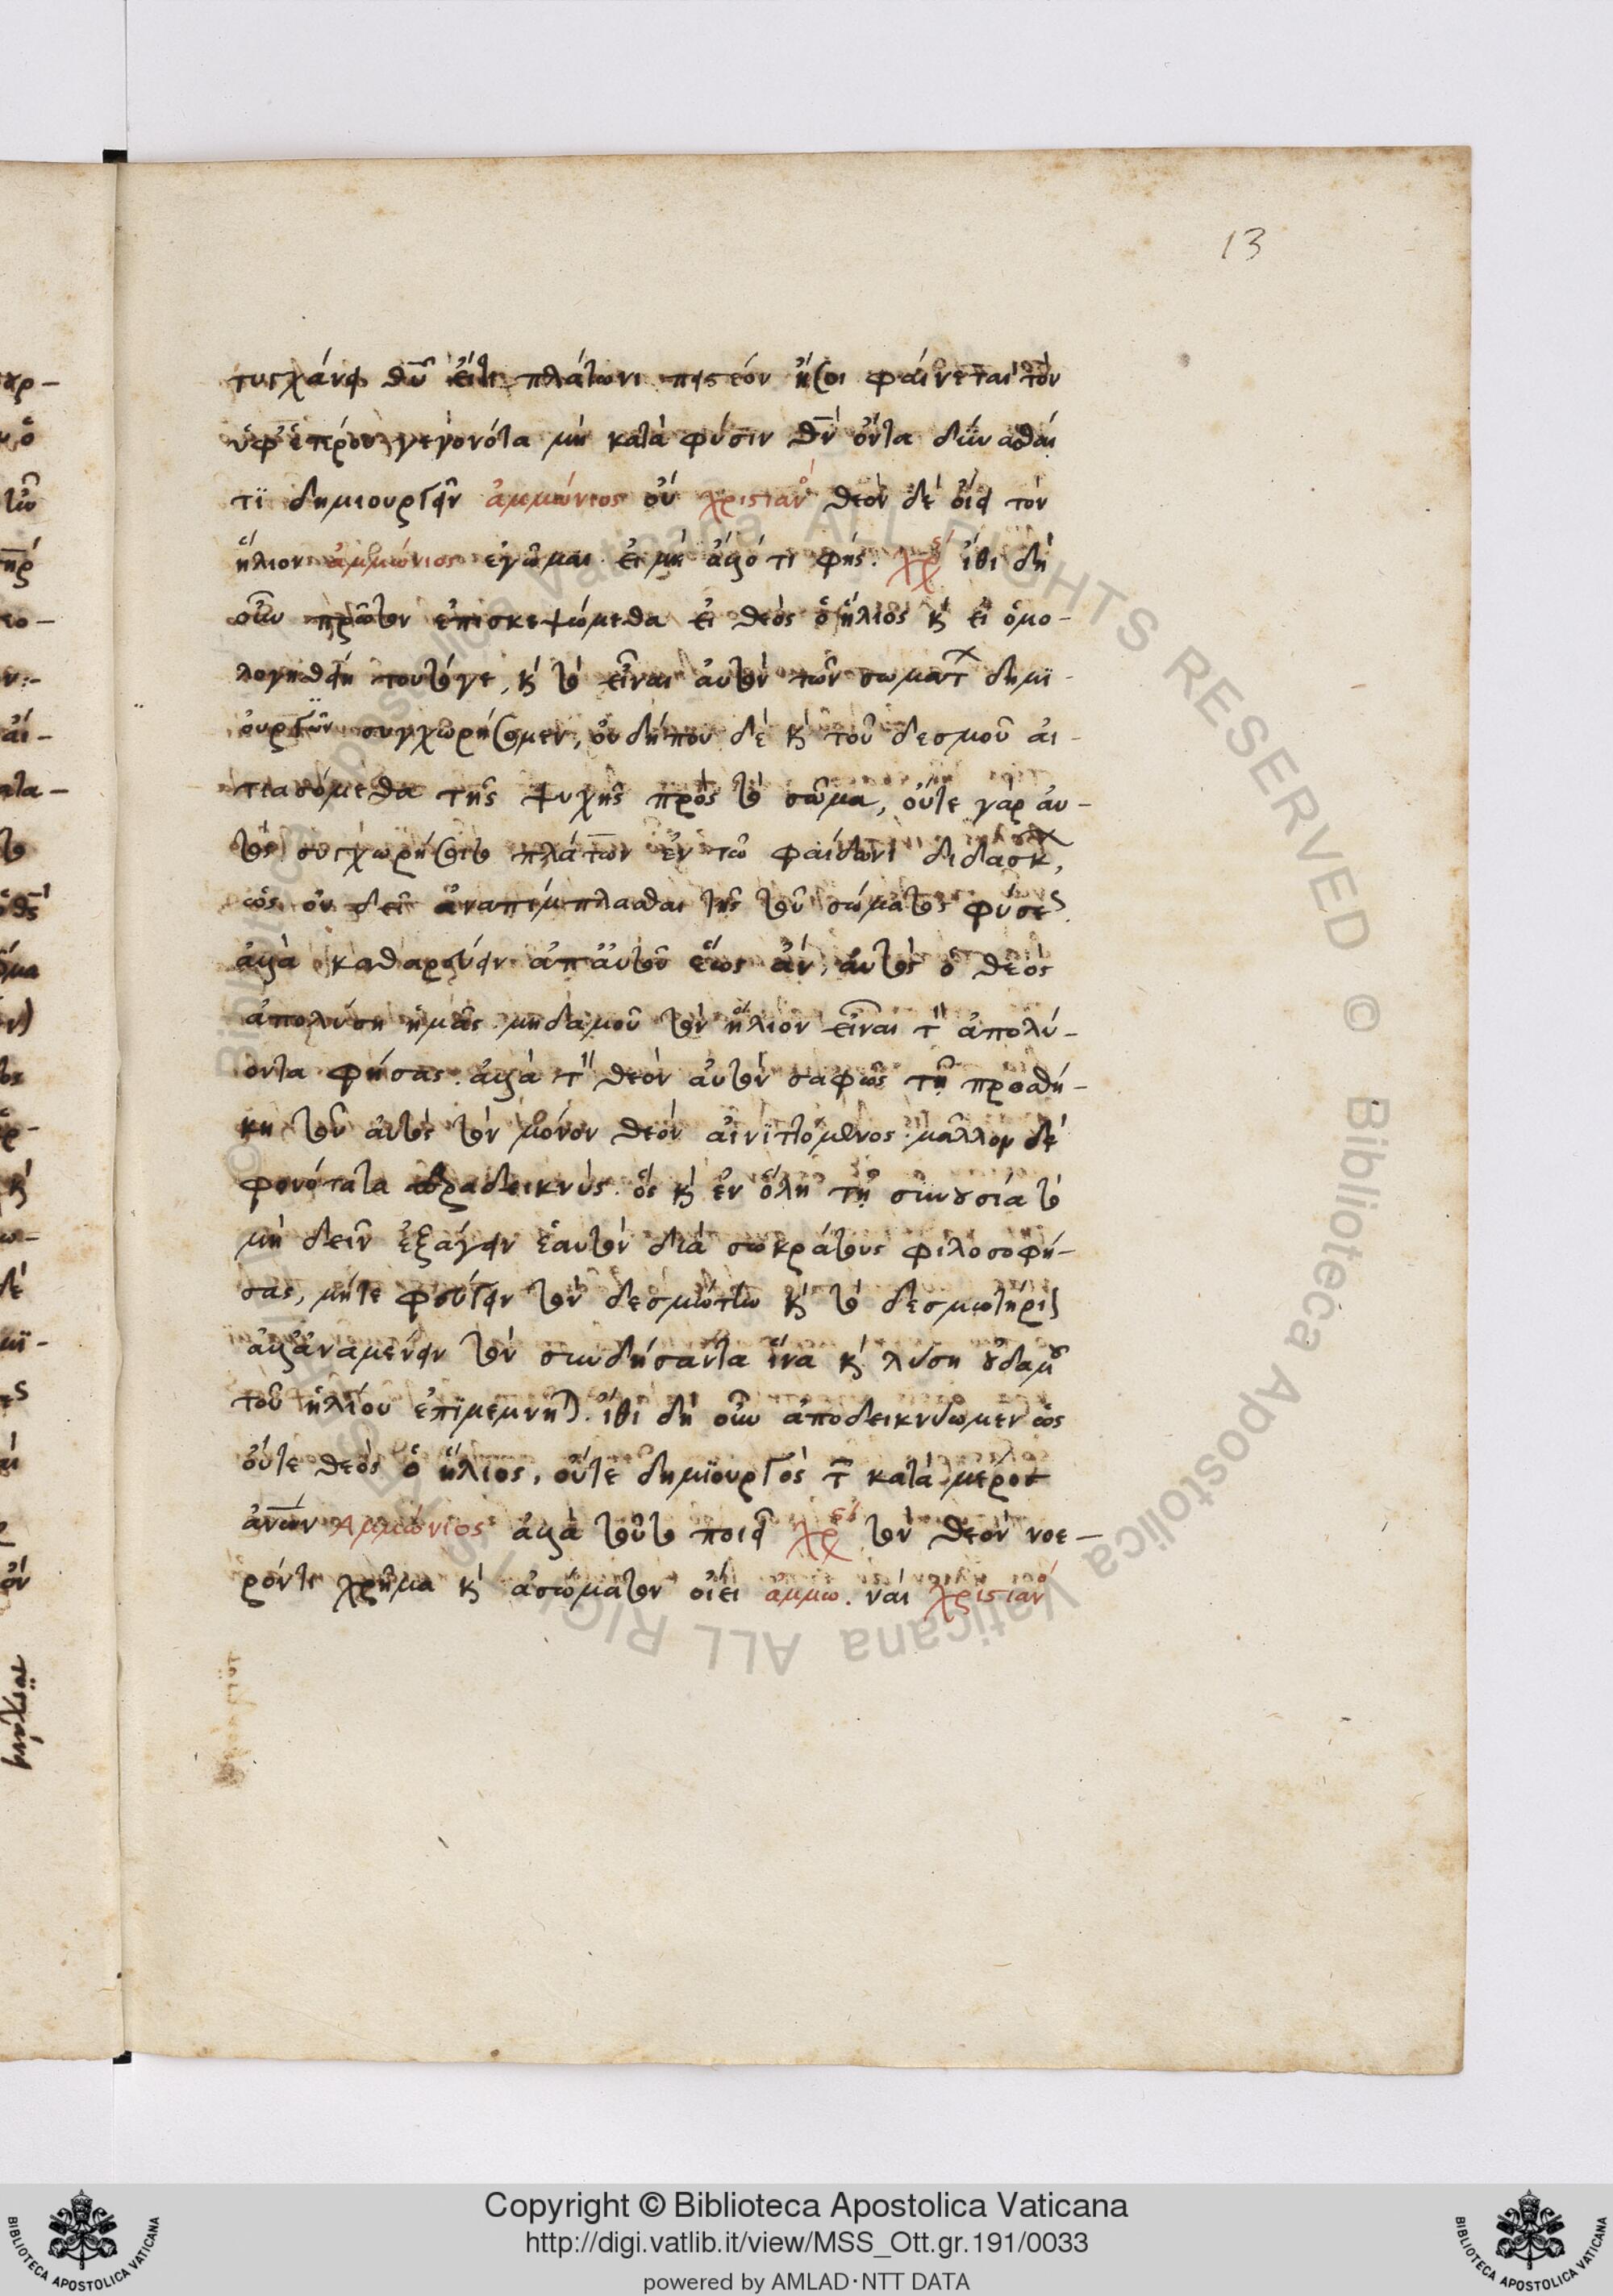 13
τυγχάνει θῦ εἴτι πλάτωνι πιστέον ἤ σοι φαίνεται τὸν
ὑφ' ἑτέρου γεγονότα μὴ κατὰ φύσιν θν ὄντα δύνασθαι
τϊ δημιουργεῖν ἀμμώνιος οὔ χριστιαν θεὸν δὲ οἴει τὸν
ἥλιον ἀμμώνιος ἐγᾦμαι εἰ μὴ ἄλλό τι φής. χρ ἴθι δὴ
οὖν πρῶτον ἐπισκεψώμεθα εἰ θεὸς ὁ ἥλιος κ εἰ ὁμο-
λογηθείη τουτόγε, κ τὸ εἶναι αὐτὸν τῶν σωματ δημϊ-
ουργὸν συγχωρήσομεν, οὐ δήπου δὲ κ τοῦ δεσμοῦ αἰ-
τιασόμεθα τῆς ψυχῆς πρὸς τὸ σῶμα, οὔτε γὰρ αὐ-
τὸς συγχωρήσει πλάτων ἐν τῶ φαίδωνι διδασκ,
ὡς οὐ δεῖ ἀναπίμπλασθαι τῆς τοῦ σώματος φύσεως.
ἀλλὰ καθαρεύειν ἀπ' αὐτοῦ ἕως ἂν αὐτὸς ὁ θεὸς
ἀπολύση ἡμᾶς. μηδαμοῦ τὸν ἥλιον εἶναι τ ἀπολύ-
οντα φήσας. ἀλλὰ τ θεὸν αὐτὸν σαφῶς τῆ προσθή-
κη τοῦ αὐτὸς τὸν μόνον θεὸν αἰνιττόμενος μᾶλλον δὲ
φανότατα παραδεικνύς. ὃς κ ἐν ὅλη τῆ συνουσία τὸ
μὴ δεῖν ἐξάγειν ἑαυτὸν διὰ σωκράτους φιλοσοφή-
σας, μήτε φεύγειν τὸν δεσμώτην κ τὸ δεσμωτήριον
ἀλλ' ἀναμένειν τὸν συνδήσαντα ἵνα κ λύση οὐδαμοῦ
τοῦ ἡλίου ἐπϊμέμνηται. ἴθι δὴ οὖν ἀποδεικνύωμεν ὡς
οὔτε θεὸς ὁ ἥλιος, οὔτε δημϊουργὸς τ κατὰ μέρος
ἀνων Ἀμμώνιος ἀλλὰ τοῦτο ποίει χρ τὸν θεὸν νοε-
ρόν τι χρῆμα κ ἀσώματον οἴει ἀμμω. ναί χριστιαν
Copyright © Biblioteca Apostolica Vaticana
http://digi.vatlib.it/view/MSS_Ott.gr.191/0033
powered by AMLAD·NTT DATA